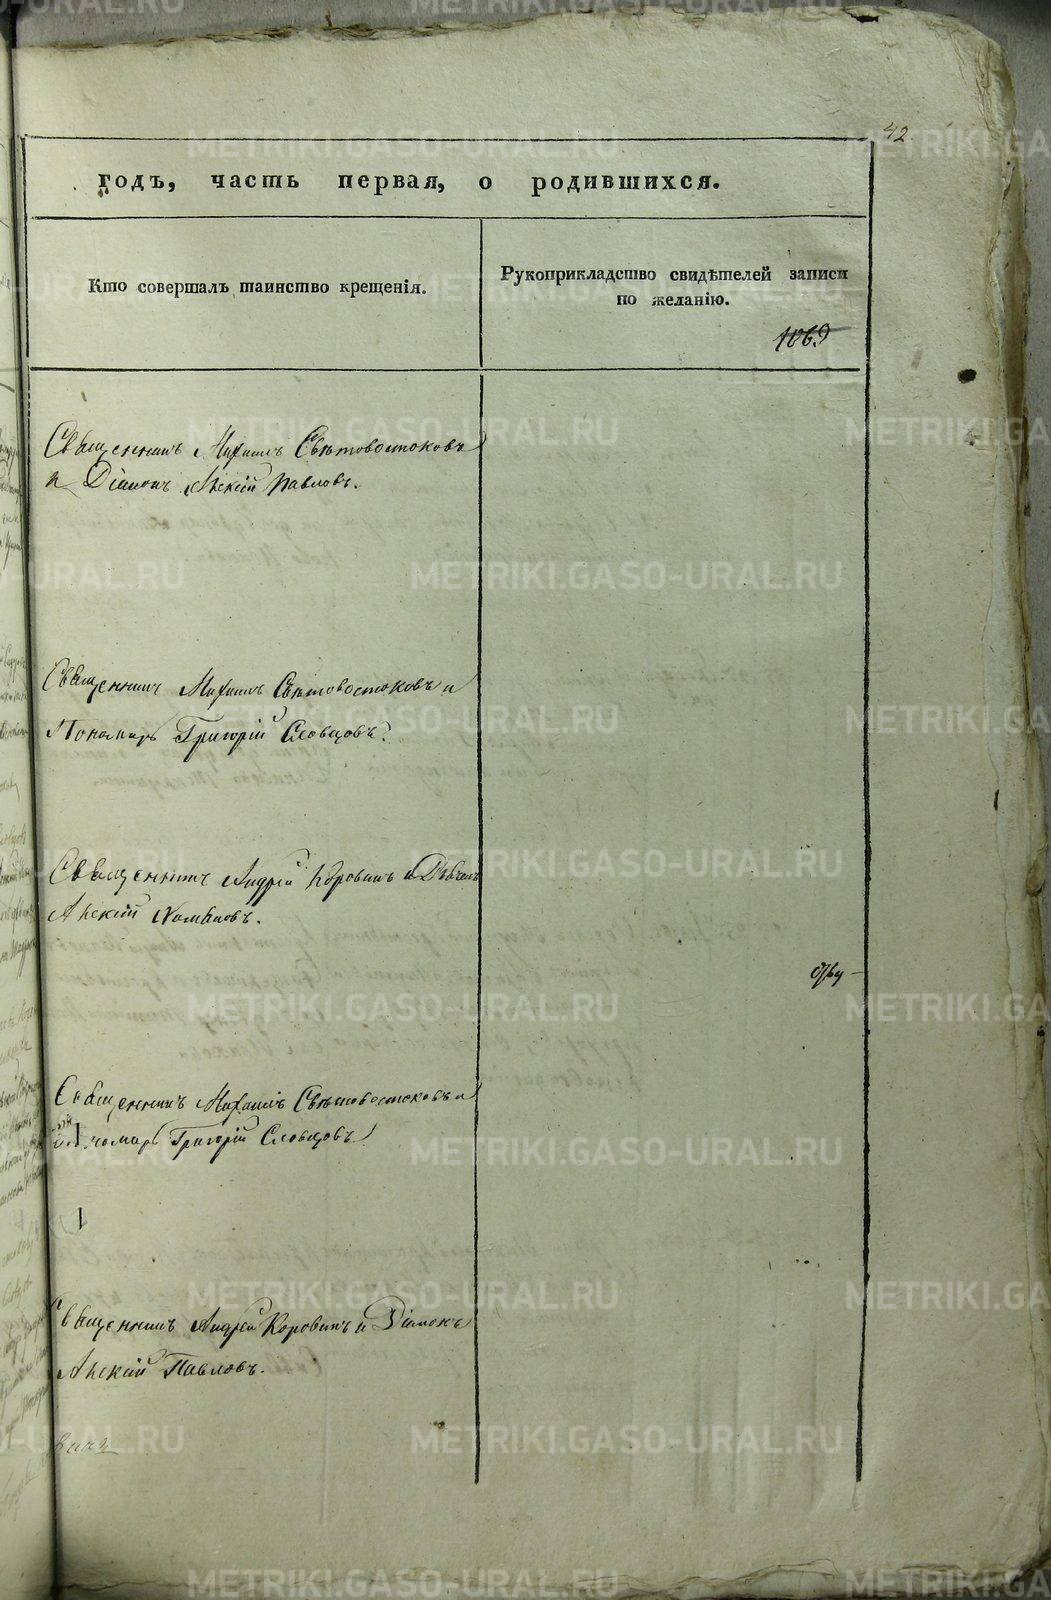 42
годъ, часть первая, о родившихся.
Кто совершалъ таинство крещенія.
Рукоприкладство свидѣтелей записи
по желанію.
1069
Священникъ Михаилъ Свѣтовостоковъ
и Діаконъ Алексій Павловъ.
Священникъ Михаилъ Свѣтовостоковъ и
Пономарь Григорій Словцовъ.
Священникъ Андрей Коровинъ и
Алексій
Священникъ Михаилъ Свѣтовостоковъ и
Пономарь Григорій Словцовъ
Священникъ Андрей Коровинъ и Діаконъ
Алексій Павловъ.
METRIKI.GASO-URAL.RU